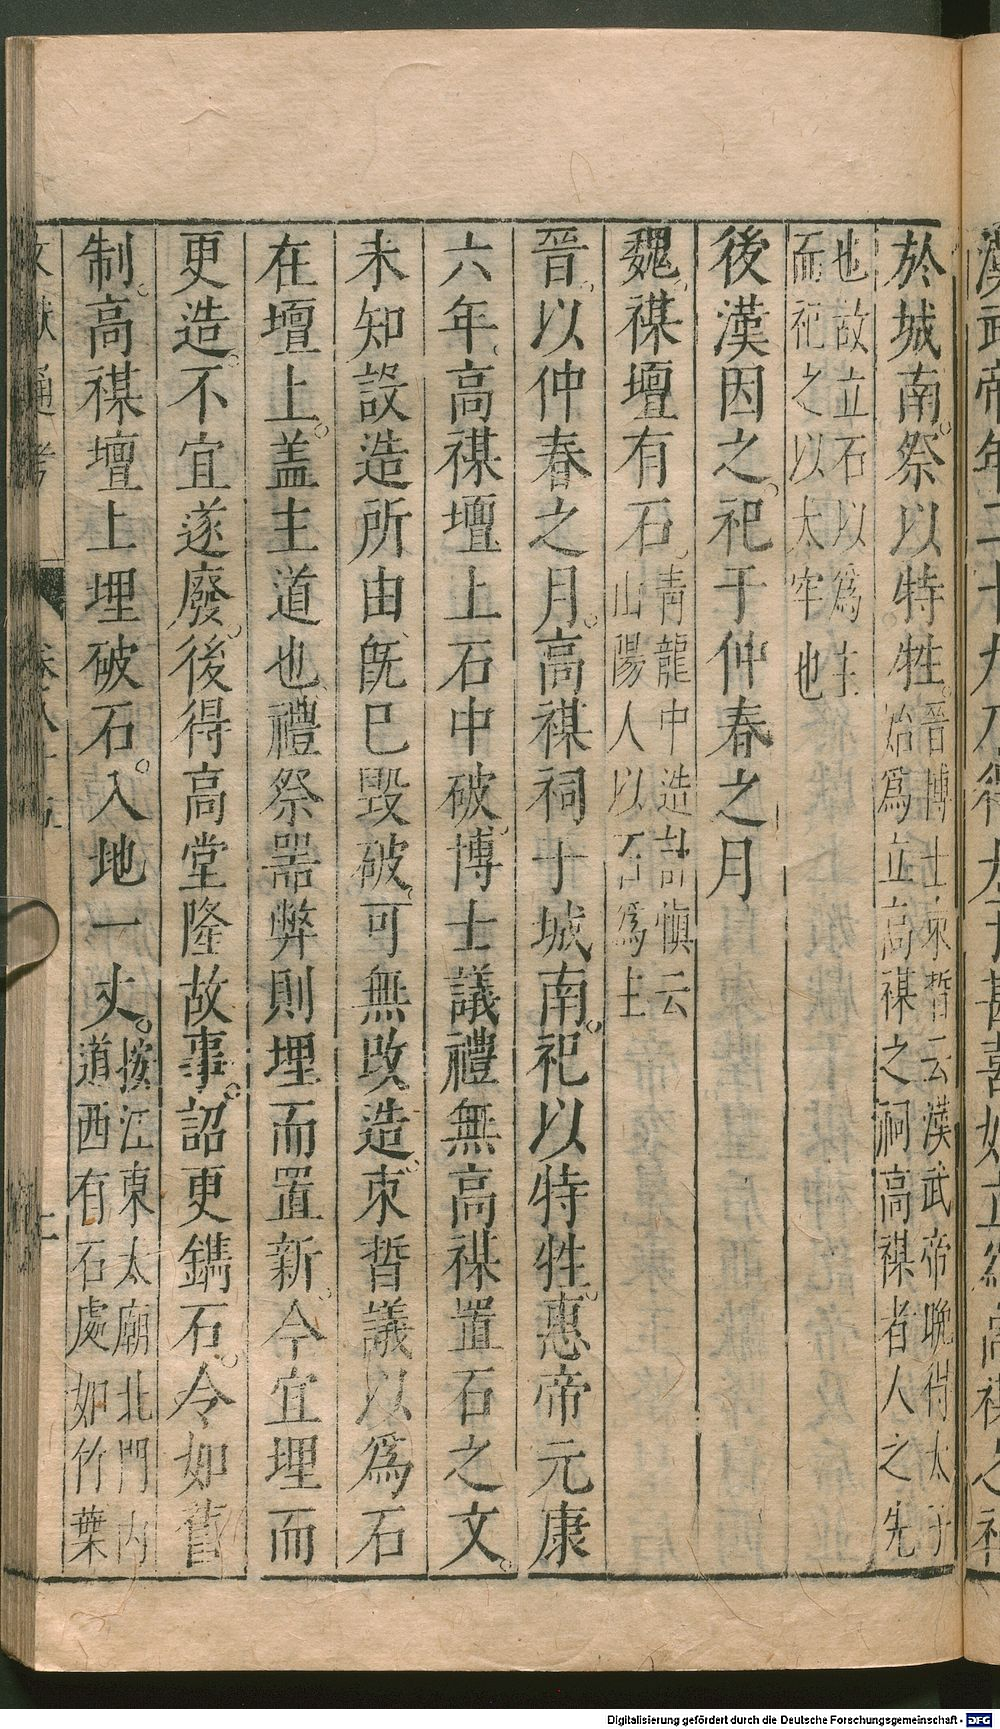 漢武帝年二十九乃得太子甚喜始立爲高禖之祠
於城南祭以特牲晉博士束晳云漢武帝晩得太子
始爲立高禖之祠高禖者人之先
也故立石以爲主
而祀之以太牢也
後漢因之祀于仲春之月
魏禖壇有石青龍中造許慎云
山陽人以石爲主
晉以仲春之月高禖祠于城南祀以特牲惠帝元康
六年高禖壇上石中破博士議禮無高禖置石之文
未知設造所由旣巳毁破可無改造束晳議以爲石
在壇上盖主道也禮祭器弊則埋而置新今宜埋而
更造不宜遂廢後得高堂隆故事詔更鐫石令如舊
制高禖壇上埋破石入地一丈按江東太廟北門内
道西有石處如竹葉
文獻通考 卷八十五
Digitalisierung gefördert durch die Deutsche Forschungsgemeinschaft - DFG